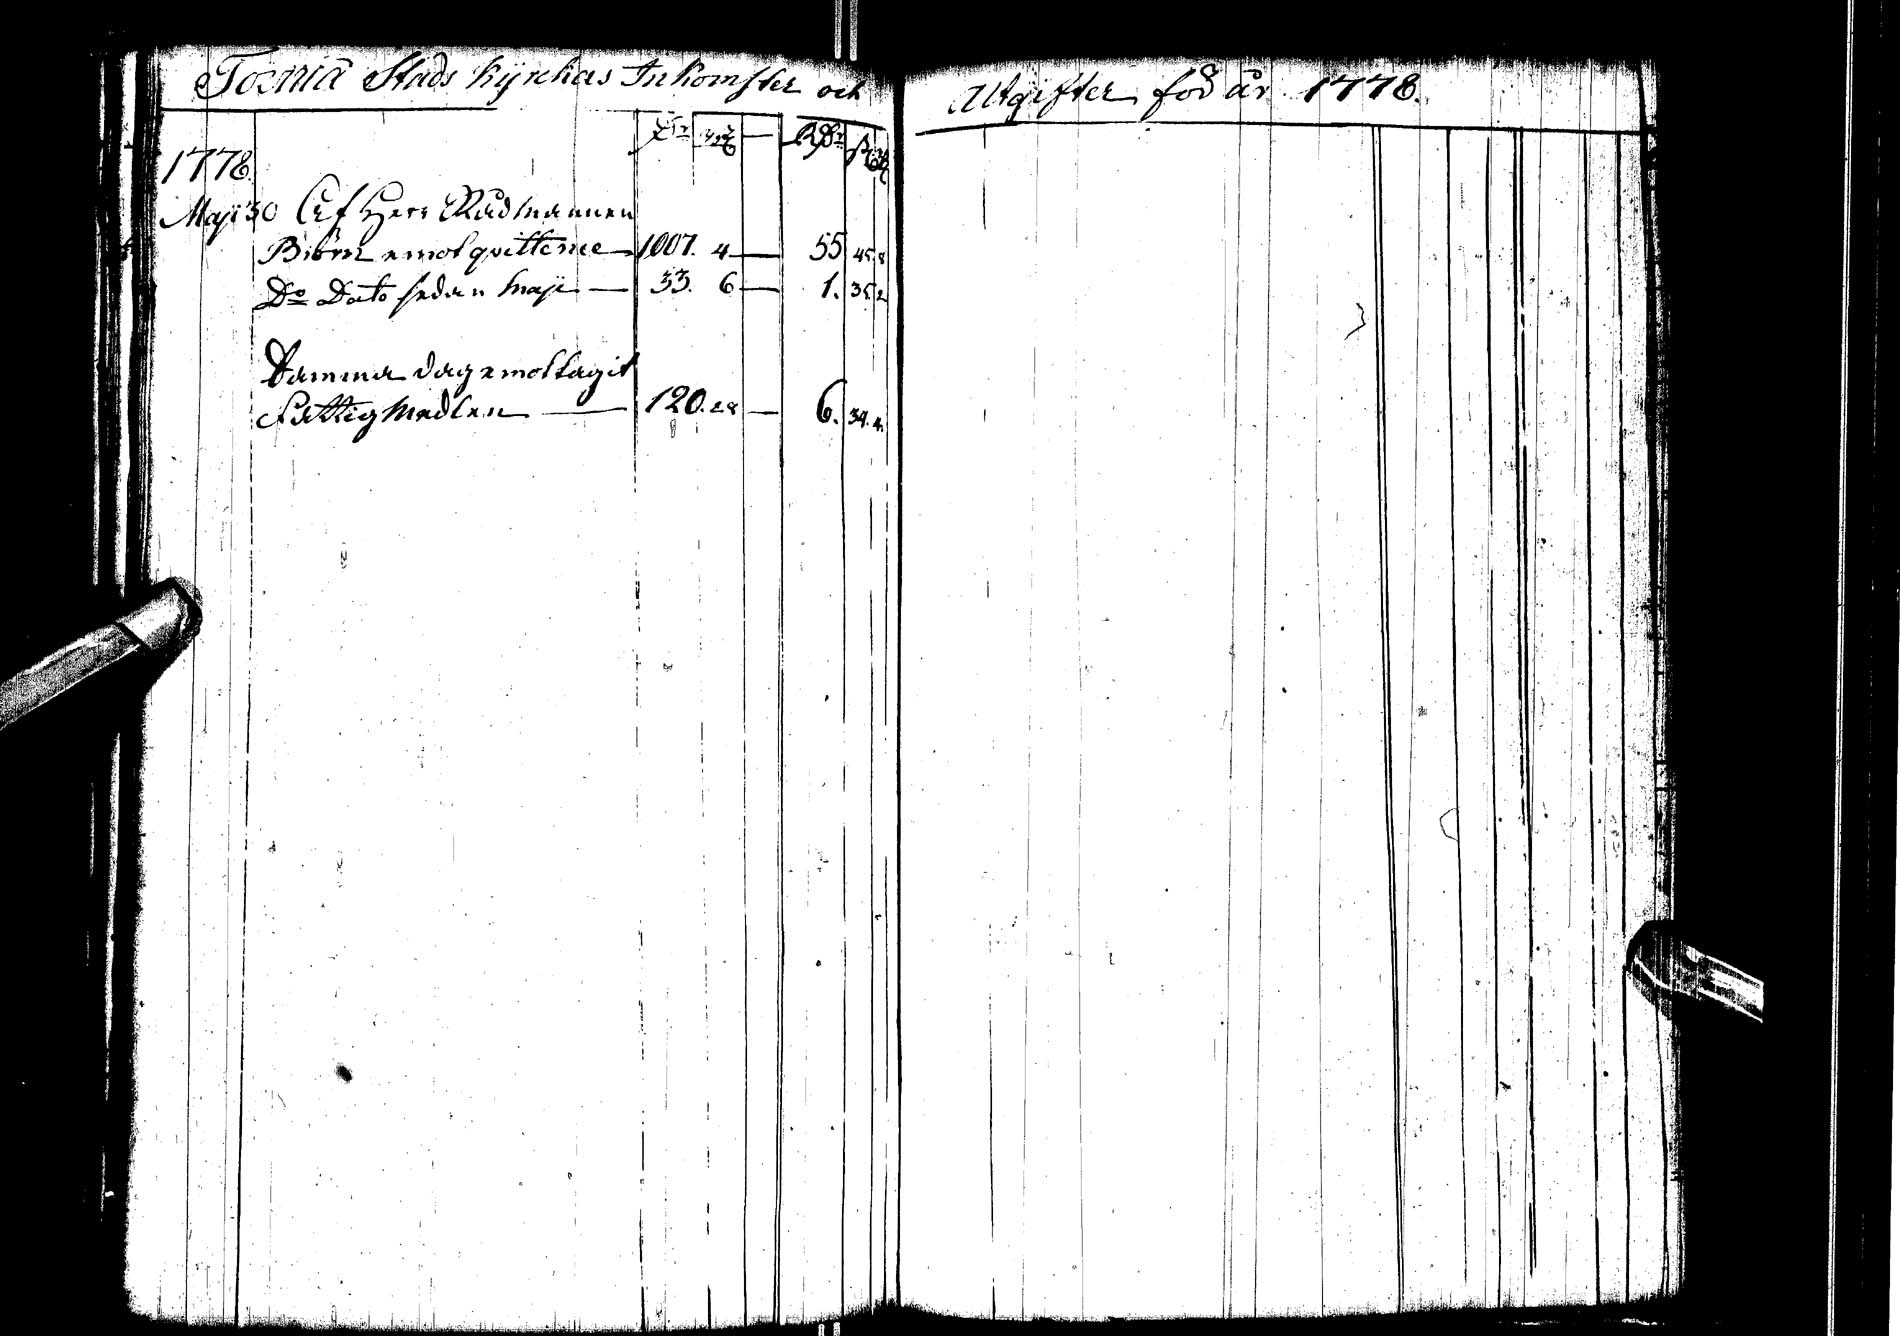 Torneå Stads Kyrckas Inkomster och
Utgifter för år 1778.
1778.
Maji 30 Af Herr Rådmannen
Biörn emot qvittence 1007. 4 — 55 45. 8
Do Dato sedan 33. 6 — 1. 35. 2
Samma dag emottagit
Fattig Medlen 120. 28 — 6. 34. 4.